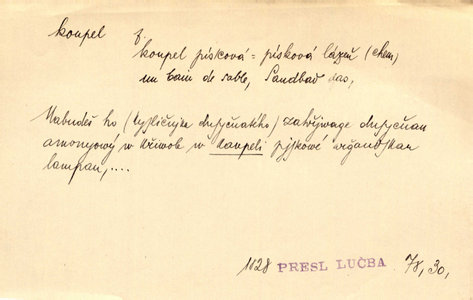 koupel f.
koupel písková = písková lázeň (chem)
un bain de sable, Sandbad das,
Nabudeš ho (kysličnjka dusyčnatého) zahřjwage dusyčnan
amonyowý w křiwole w koupeli pjskowé argandskau
lampau,....
1828 PRESL LUČBA 78, 30,